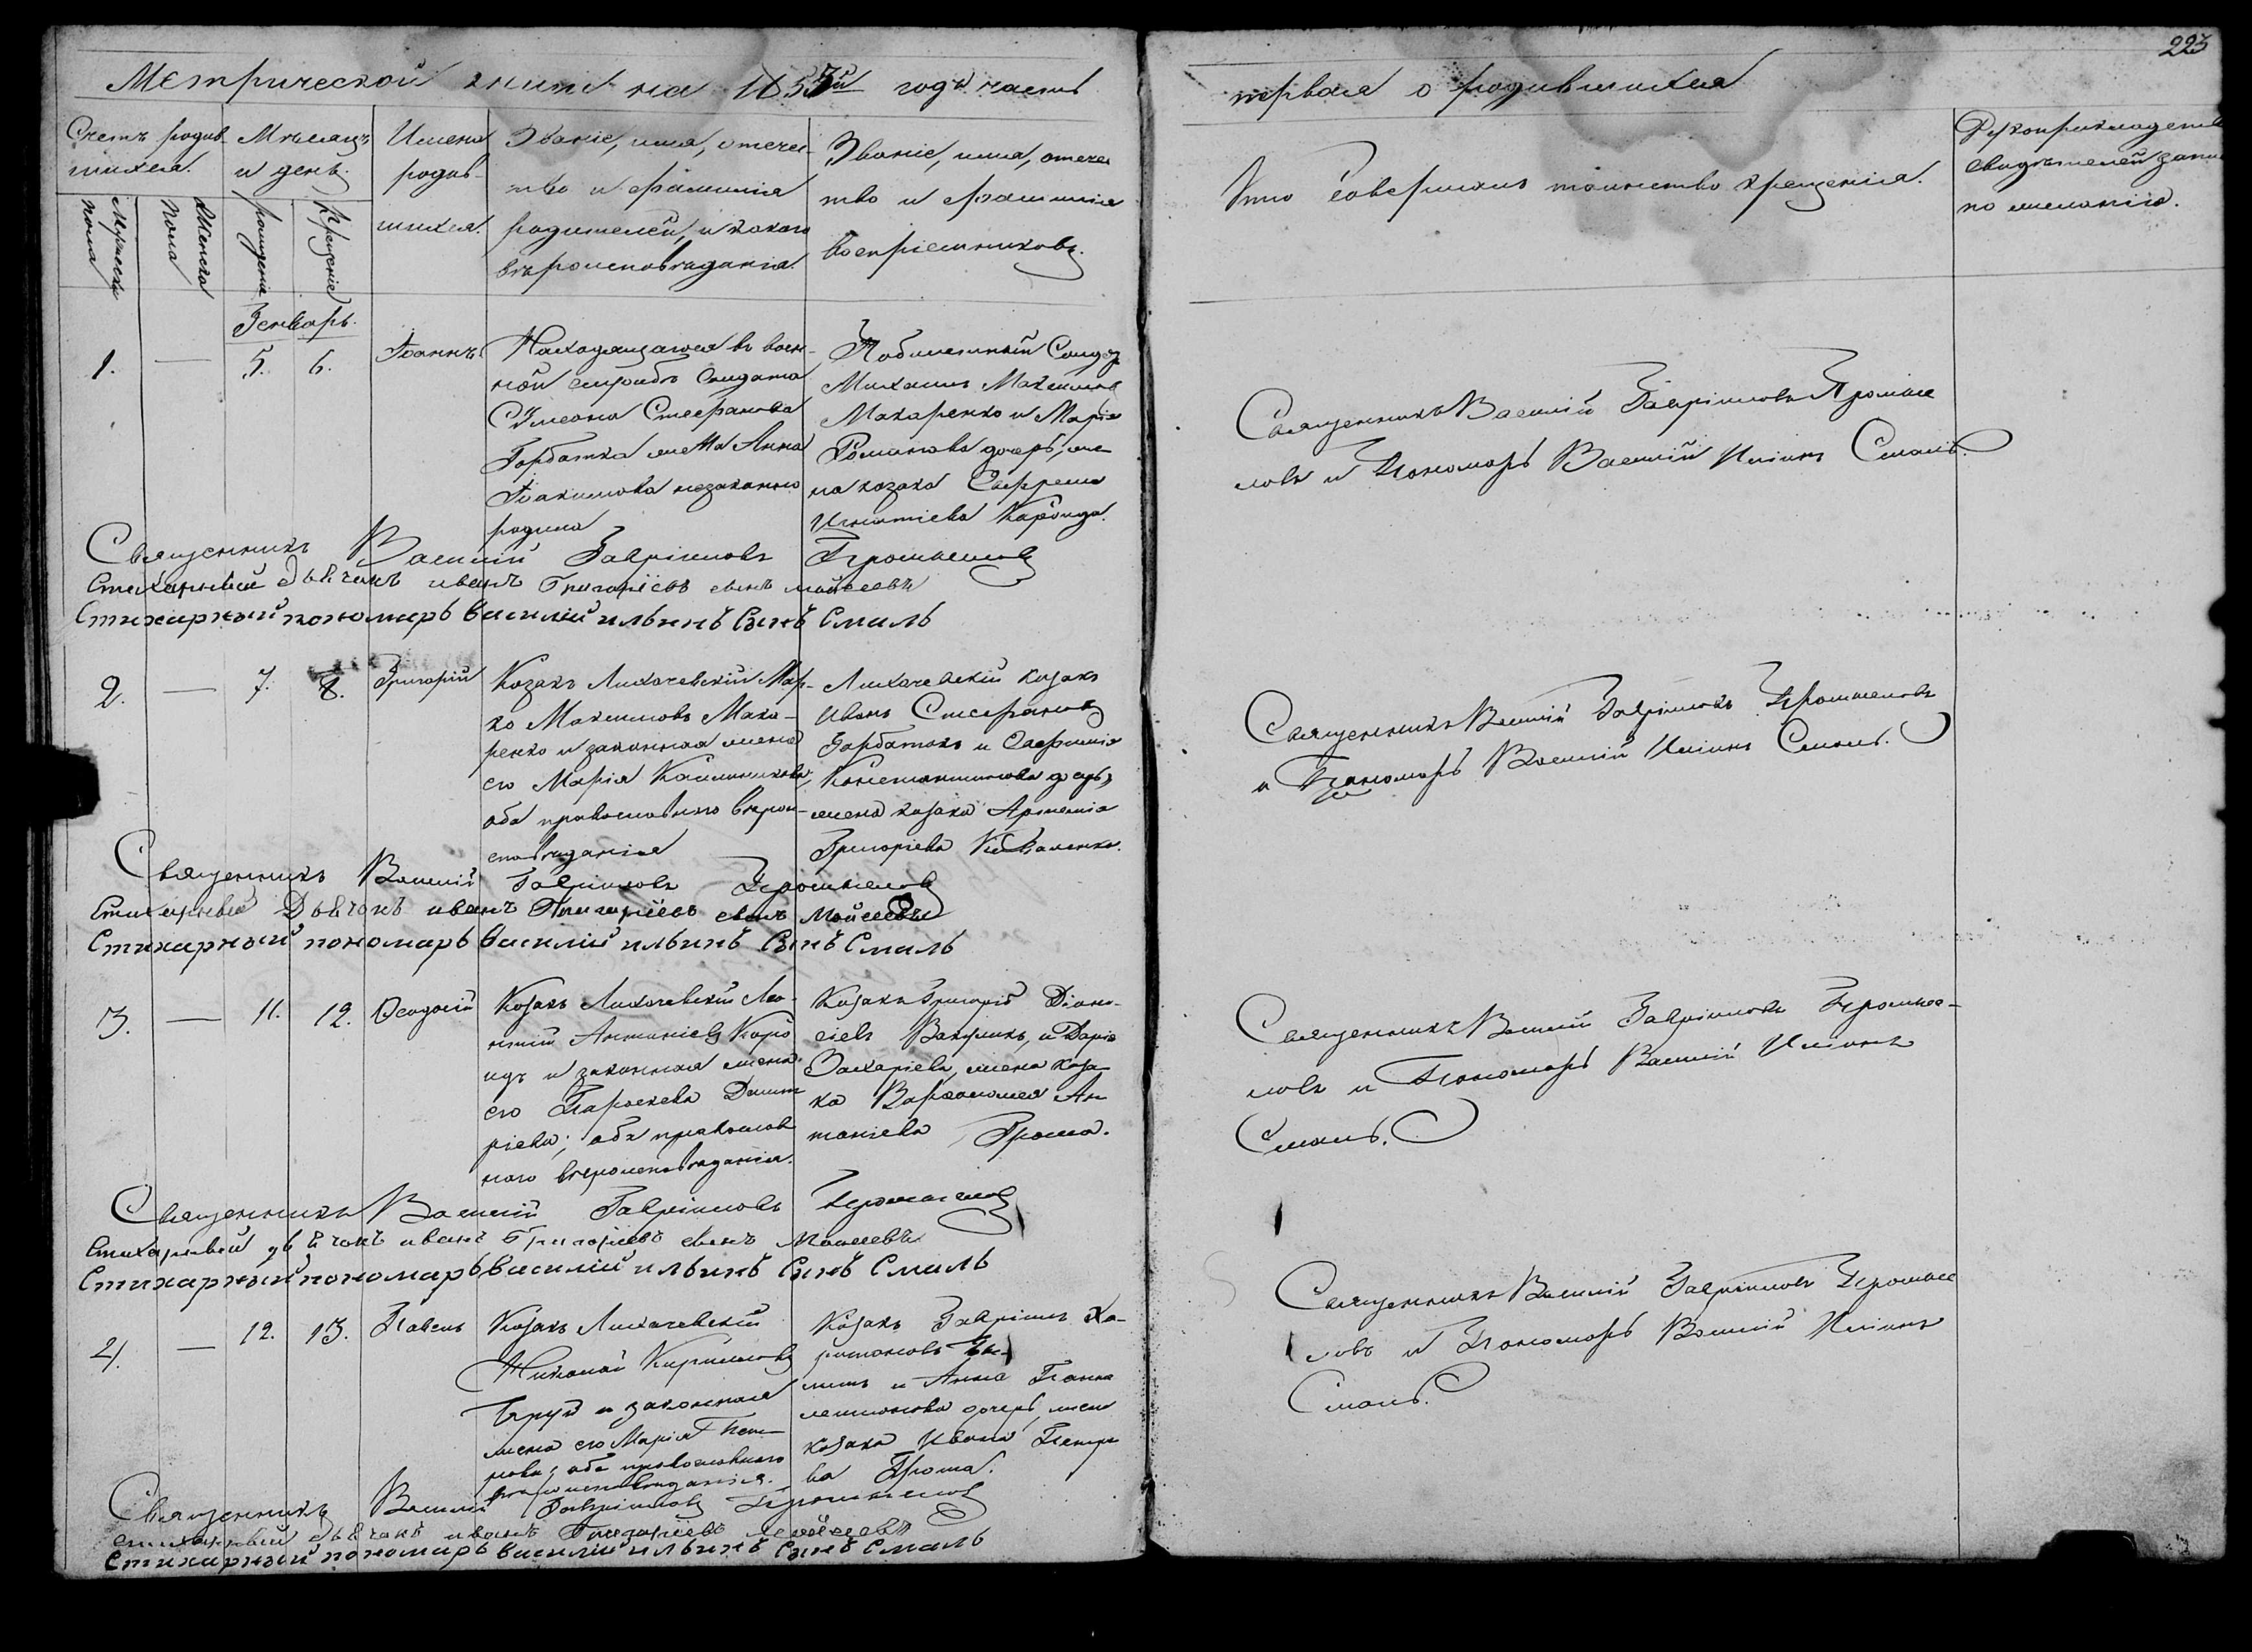 223
Метрической книги на 1853й годъ часть
первая о родившихся
Счетъ родив-
шихся.
Мужеска
пола
Женска
пола
Мѣсяцъ
и день.
рожденіе
крещеніе
Имена
родив-
шихся.
Званіе, имя, отече-
ство и фамилія
родителей, и какого
вѣроисповѣданія.
Званіе, имя, отече
ство и фамилія
воспріемниковъ.
Кто совершалъ таинство крещенія.
Рукоприкладство
свидѣтелей запи
по желанію.
Генварь.
1. — 5. 6. Іоаннъ
Находящагося въ воен-
ной службѣ Солдата
Сѵмеона Стефанова
Горбатка жена Анна
Іоакимова незаконно
родила
Михаилъ Максимовъ
Макаренко и Марія
Романова дочерь, же-
на козака
Игнатіева
Священникъ Василій Гавріиловъ
ловъ и Пономарь Василій Иліинъ Смаль.
Священникъ Василій Гавріиловъ
Стихарный Дьячокъ иванъ Григоріевъ сынъ мойсеевъ
Стихарный пономарь василій ильинъ Сынъ Смаль
2. — 7. 8. Григорій
Козакъ Лихачевскій Мар-
ко Максимовъ Мака-
ренко и законная жена
его Марія
оба православнаго вѣрои-
сповѣданія
Лихачевскій козакъ
Иванъ Стефановъ
Горбатокъ и Евфимія
Константинова дочерь,
жена козака Артемія
Григоріева Коваленка.
Священникъ Василій Гавріиловъ
и Пономарь Василій Иліинъ Смаль.
Священникъ Василій Гавріиловъ
Стихарный Дьячокъ иванъ Григоріевъ сынъ Мойсеевъ
Стихарный пономарь василій ильинъ Сынъ Смаль
3. — 11. 12. Ѳеодосій
Козакъ Лихачевскій Лео-
нтій Антоніевъ
и законная жена
его Параскева Дими
ріева; оба православ
наго вѣроисповѣданія.
Козакъ Григорій Діони-
сіевъ и Дарія
Захаріева, жена коза-
ка Варѳоломея Ан
тоніева Грома.
Священникъ Василій Гавріиловъ
ловъ и Пономарь Василій Иліинъ
Смаль.
Священникъ Василій Гавріиловъ
Стихарный дьячокъ иванъ Григоріевъ сынъ Моисеевъ
Стихарный пономарь василій ильинъ Сынъ Смаль
4. — 12. 13. Павелъ
Козакъ Лихачевскій
Николай Кирилловъ
и законная
жена его Марія Пет-
рова; оба православнаго
вѣроисповѣданія.
Козакъ Гавріилъ Ха-
ритоновъ
и Анна Панте
леимонова дочерь, жена
козака Ивана Петро
ва Грома.
Священникъ Василій Гавріиловъ
ловъ и Пономарь Василій Иліинъ
Смаль.
Священникъ Василій Гавріиловъ
стихарный дьячокъ иванъ Григоріевъ мойсеевъ
Стихарный пономарь василій ильинъ Сынъ Смаль